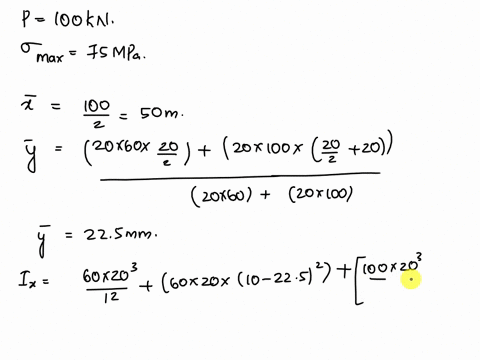 P = 100kN.
σmax = 75MPa.
x̄ = 100/2 = 50m.
ȳ = (20×60×20/2) + (20×100×(20/2+20)) / (20×60) + (20×100)
ȳ = 22.5mm.
Ix = 60×20³/12 + (60×20×(10-22.5)²) + [100×20³